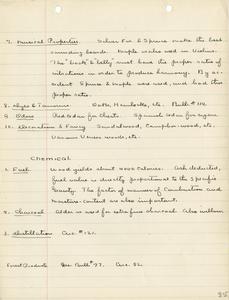 7. Musical Properties. Silver Fir & Spruce make the best
sounding boards. Maple also used in Violins.
The "back" & "belly" must have the proper ratio of
vibrations in order to produce harmony. By ac-
cident Spruce & Maple were used, and had this
proper ratio.
8. Dyes & Tannins. Oaks, Hemlocks, etc. Bull. #
9. Odors Red Cedar for Chests. Spanish Cedar for cigars
10. Decorations & Fancy Sandalwood, Camphor-wood, etc.
Various Veneer woods, etc.
Chemical
1. Fuel. Wood yields about 4000 Calories. Ash deducted,
fuel value is directly proportional to the Specific
Gravity. The factor of manner of Combustion and
moisture-content are also important.
2. Charcoal Alder is used for extra fine charcoal. Also willow.
3. Distillation Circ. #121.
Forest Products See Bull #77. Circ. 52.